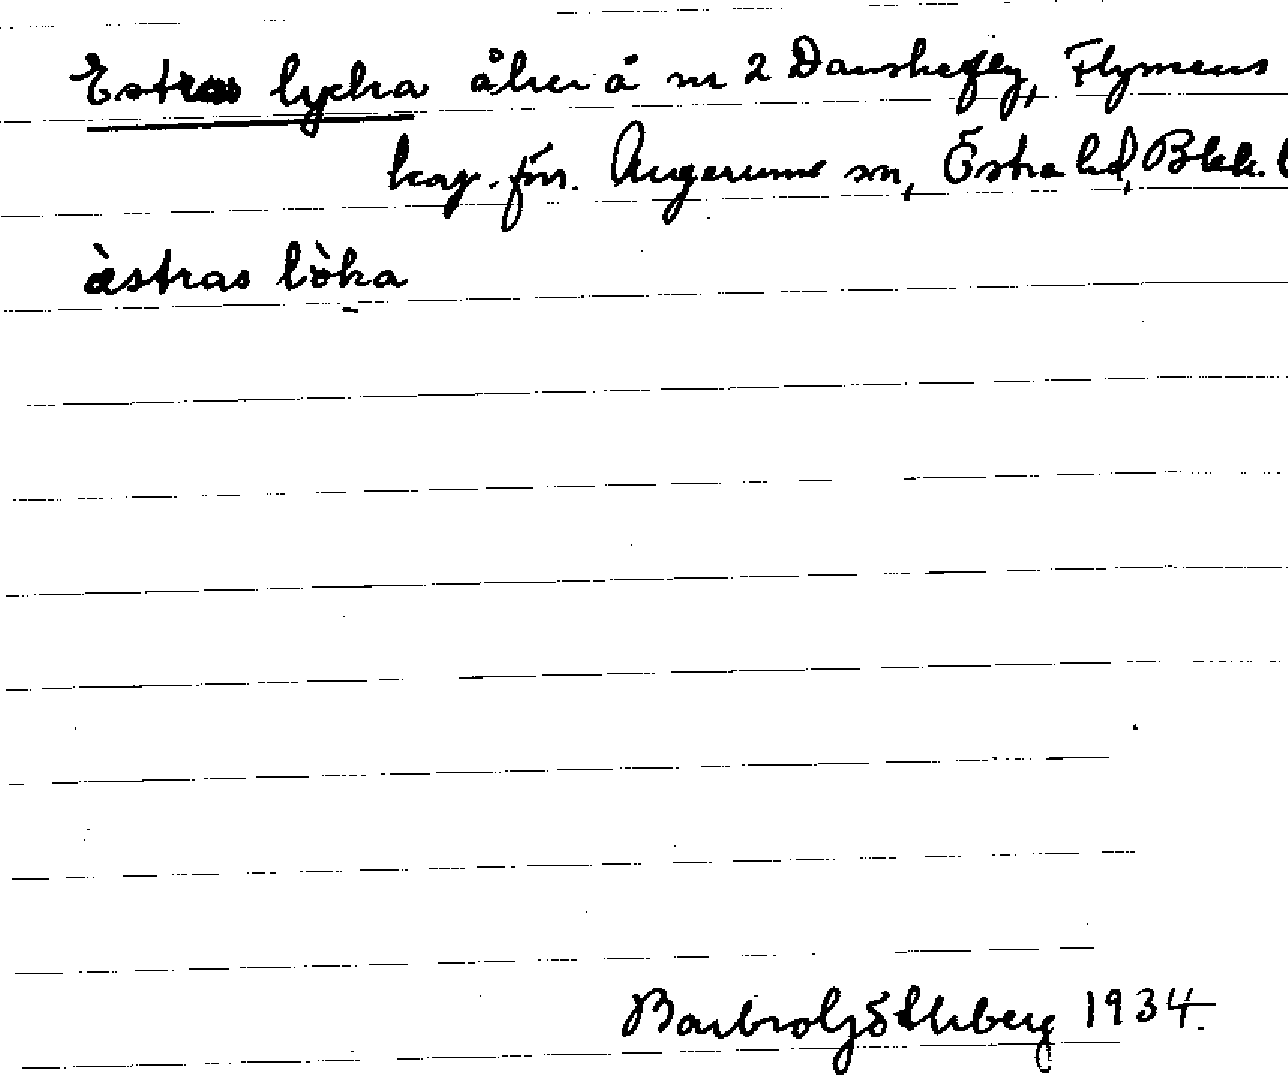 Estras lycka åker å nr 2 Danskefly, Flymens
kap. för. Augerums sn, Östra hd, Blek. l
àstras lòka
Barbro Göthberg 1934.